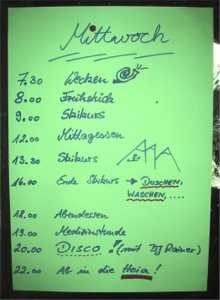 Mittwoch
7.30 Wecken
8.00 Frühstück
9.00 Skikurs
12.00 Mittagessen
13.30 Skikurs
16.00 Ende Skikurs → DUSCHEN,
WASCHEN,....
18.00 Abendessen
19.00 Medizinstunde
20.00 DISCO! (mit DJ Rainer)
22.00 Ab in die Heia!